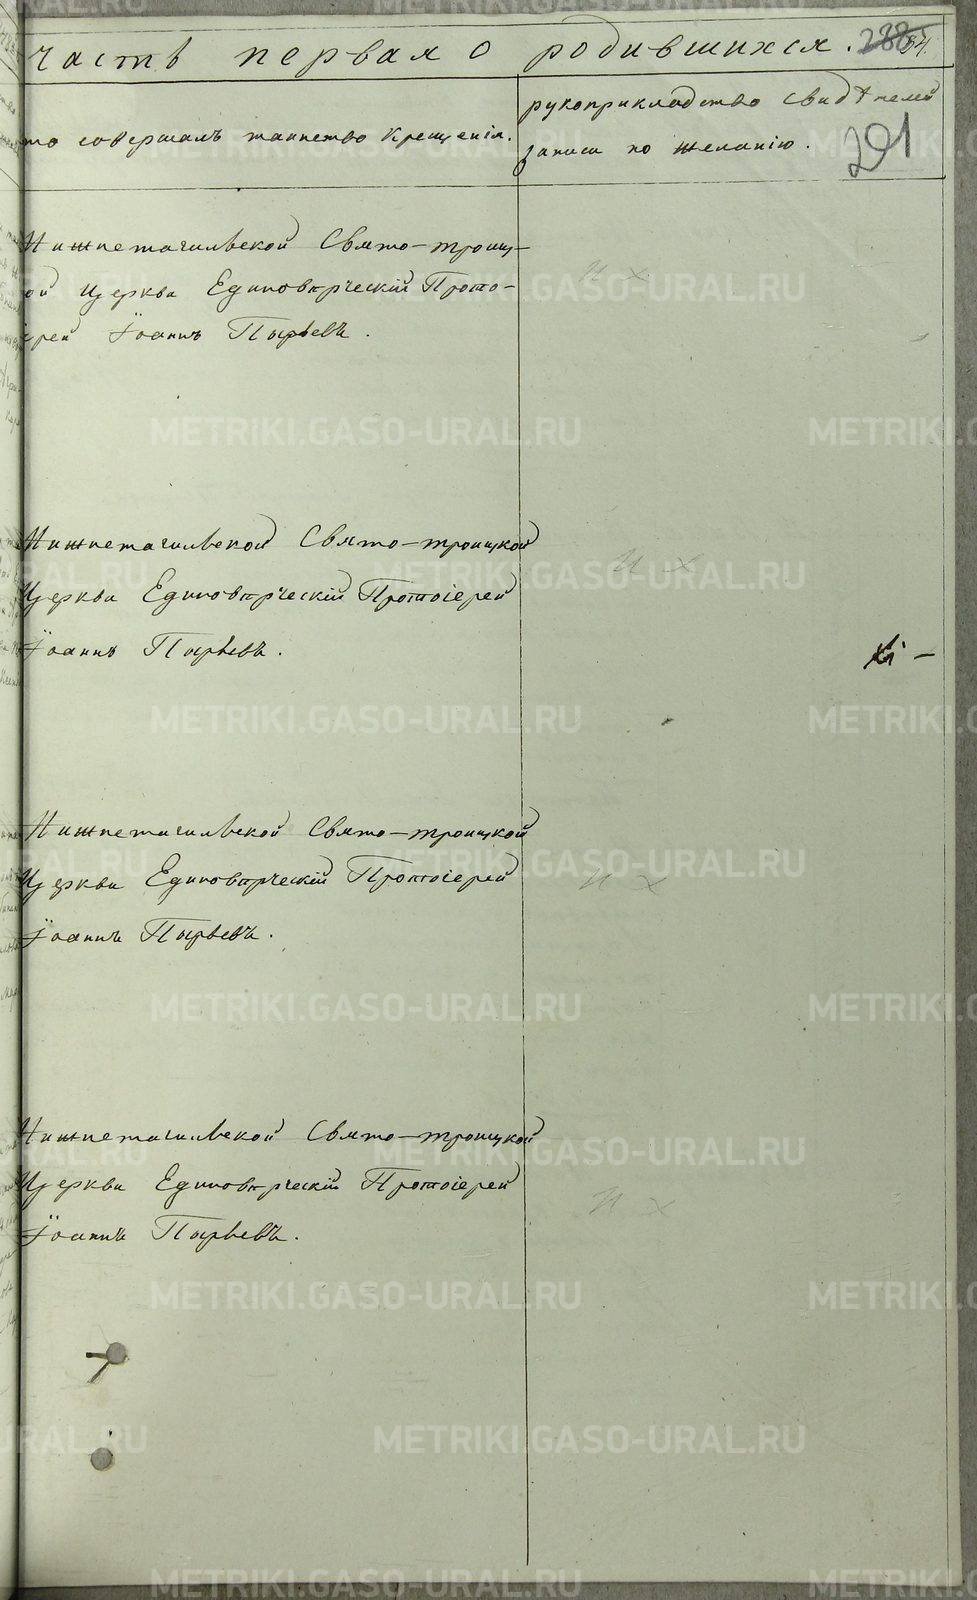 часть первая о родившихся.
то совершалъ таинство крещенія.
рукоприкладство свидѣтелей
записи по желанію.
291
Нижнетагильской Свято-троиц-
ой церкви Единовѣрческій Прото-
ерей Іоаннъ Пырьевъ.
Нижнетагильской Свято-троицкой
Церкви Единовѣрческій Протоіерей
Іоаннъ Пырьевъ.
Нижнетагильской Свято-троицкой
Церкви Единовѣрческій Протоіерей
Іоаннъ Пырьевъ.
Нижнетагильской Свято-троицкой
Церкви Единовѣрческій Протоіерей
Іоаннъ Пырьевъ.
METRIKI.GASO-URAL.RU